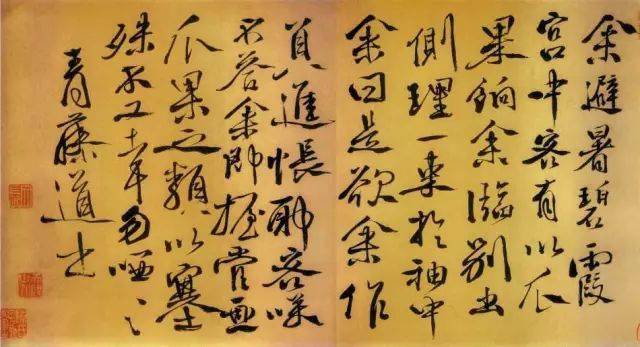 余避暑碧霞
宮中客有以瓜
果餉余臨別出
側理一束於袖中
余曰是欲余作
進帳耶客咲
不答余即握管画
瓜果之類以塞
殊勿哂〻
青藤道士